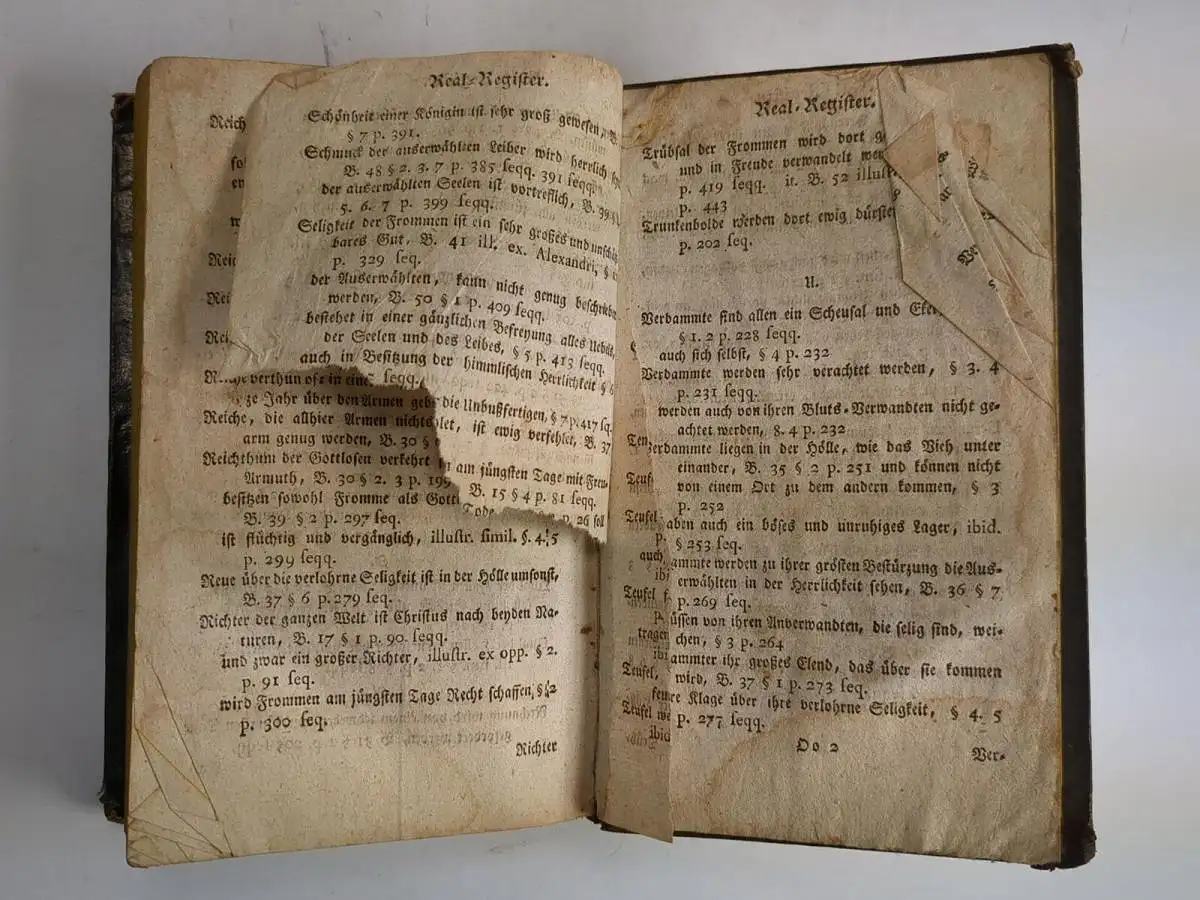 Real-Register.
Schönheit einer Königin ist sehr groß gewesen, B.
§ 7 p. 391.
Schmuck der auserwählten Leiber wird herrlich
B. 48 § 2. 3. 7 p. 385 seqq. 391 seqq.
der auserwählten Seelen ist vortreflich, B. 39
5. 6. 7 p. 399 seqq.
Seligkeit der Frommen ist ein sehr großes und
bares Gut, B. 41 ill. ex. Alexandri, §
p. 329 seq.
der Auserwählten, kann nicht genug beschrieben
werden, B. 50 § 1 p. 409 seqq.
bestehet in einer gänzlichen Befreyung alles Uebels,
der Seelen und des Leibes, § 5 p. 413 seqq.
auch in Besitzung der himmlischen Herrlichkeit § 6
seqq.
die Unbußfertigen, § 7 p. 417 sq.
let, ist ewig verfehlet, B. 37
am jüngsten Tage mit Freu-
B. 15 § 4 p. 81 seqq.
Tode
p. 26 seq
Reich
Reic
Rei
Rei
ze Jahr über den Armen geb
Reiche, die allhier Armen nichts
arm genug werden, B. 30 §
Reichthum der Gottlosen verkehrt
Armuth, B. 30 § 2. 3 p. 199
besitzen sowohl Fromme als Gottl
B. 39 § 2 p. 297 seq.
ist flüchtig und vergänglich, illustr. simil. §. 4. 5
p. 299 seqq.
Reue über die verlohrne Seligkeit ist in der Hölle umsonst,
B. 37 § 6 p. 279 seq.
Richter der ganzen Welt ist Christus nach beyden Na-
turen, B. 17 § 1 p. 90 seqq.
und zwar ein großer Richter, illustr. ex opp. § 2.
p. 91 seq.
wird Frommen am jüngsten Tage Recht schaffen, § 2
p. 300 seq.
Richter
Real-Register.
Trübsal der Frommen wird dort
und in Freude verwandelt
p. 419 seqq. it. B. 52
p. 443
Trunkenbolde werden dort ewig
p. 202 seq.
Ver
U.
Verdammte sind allen ein Scheusal und
§ 1. 2 p. 228 seqq.
auch sich selbst, § 4 p. 232
Verdammte werden sehr verachtet werden, § 3. 4
p. 231 seqq.
werden auch von ihren Bluts-Verwandten nicht ge-
achtet werden, §. 4 p. 232
Verdammte liegen in der Hölle, wie das Vieh unter
einander, B. 35 § 2 p. 251 und können nicht
von einem Ort zu dem andern kommen, § 3
p. 252
aben auch ein böses und unruhiges Lager, ibid.
§ 253 seq.
ammte werden zu ihrer grösten Bestürzung die Aus-
erwählten in der Herrlichkeit sehen, B. 36 § 7
p. 269 seq.
üssen von ihren Anverwandten, die selig sind, wei-
chen, § 3 p. 264
ammter ihr großes Elend, das über sie kommen
wird, B. 37 § 1 p. 273 seq.
Klage über ihre verlohrne Seligkeit, § 4. 5
p. 277 seqq.
Ten
Teuf
Teufel
auch
ibi
Teufel
tragen
ibi
Teufel,
Teufel we
ibid
Oo 2
Ver-